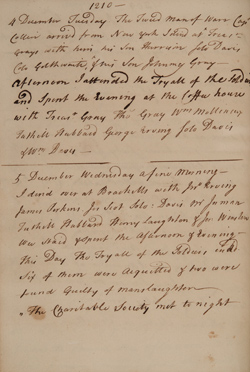 1210
4 December Tuesday The Tweed Man of War Capt
Collier arrived from New York Istead at Treasr
Grays with him his Son Thomas Solo Davis
Cha Goldthwait & his Son Johnny Gray
afternoon I attended the Tryall of the Soldiers
and Spent the Evening at the Coffee house
with Treasr Gray Tho Gray Wm Molineux
Tuthill Hubbard George Erving Solo Davis
& Wm Davis
5 December Wednesday a fine Morning
I dined over at Bracketts with Jno Erving
James Perkins Jos Scot Solo Davis Mr Inman
Tuthill Hubbard Henry Laughton & Jos Winslow
We Staid & Spent the Afternoon & Evening
This Day The Tryall of the Soldiers ended
Six of them were Acquitted & two were
found Guilty of manslaughter
The Charitable Society met to night